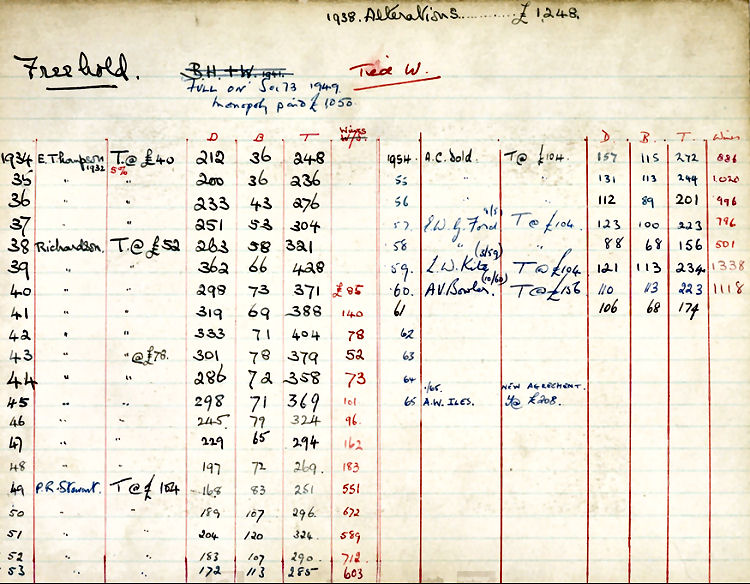 1938. Alterations.......... £ 1,248.
Freehold.
B.H. + W. 1941.
Tied W.
FULL ON Soi 73 1949.
monopoly paid £ 1050.
D B T Wines W/S. D B. T. Wines
1934 E. Thompson 1932 T. @ £40 5% 212 36 248 1954. A.C. Sold. T @ £104. 157 115 272 836
35 " " 200 36 236 55 " " 131 113 244 1020
36 " " 233 43 276 56 " " 112 89 201 996
37 " " 251 53 304 57. E.W.G. Ford T @ £104. 123 100 223 796
38 Richardson. T. @ £52 263 58 321 58 " " 88 68 156 501
39 " " 362 66 428 59. L.W. Kite (3/59) T @ £104 121 113 234 1338
40 " " 298 73 371 £85 60. A.V. Bowler. (10/60) T @ £156 110 113 223 1118
41 " " 319 69 388 140 61 106 68 174
42 " " 333 71 404 78 62
43 " " @ £78. 301 78 379 52 63
44 " " 286 72 358 73 64
45 " " 298 71 369 101 65 1/65. A.W. ILES. NEW AGREEMENT. @ £208.
46 " " 245 79 324 96.
47 " " 229 65 294 162
48 " " 197 72 269. 183
49 P.R. Stewart. T @ £104 168 83 251 551
50 " " 189 107 296. 672
51 " " 204 120 324 589
52 " " 183 107 290. 712
53 " " 172 113 285 603